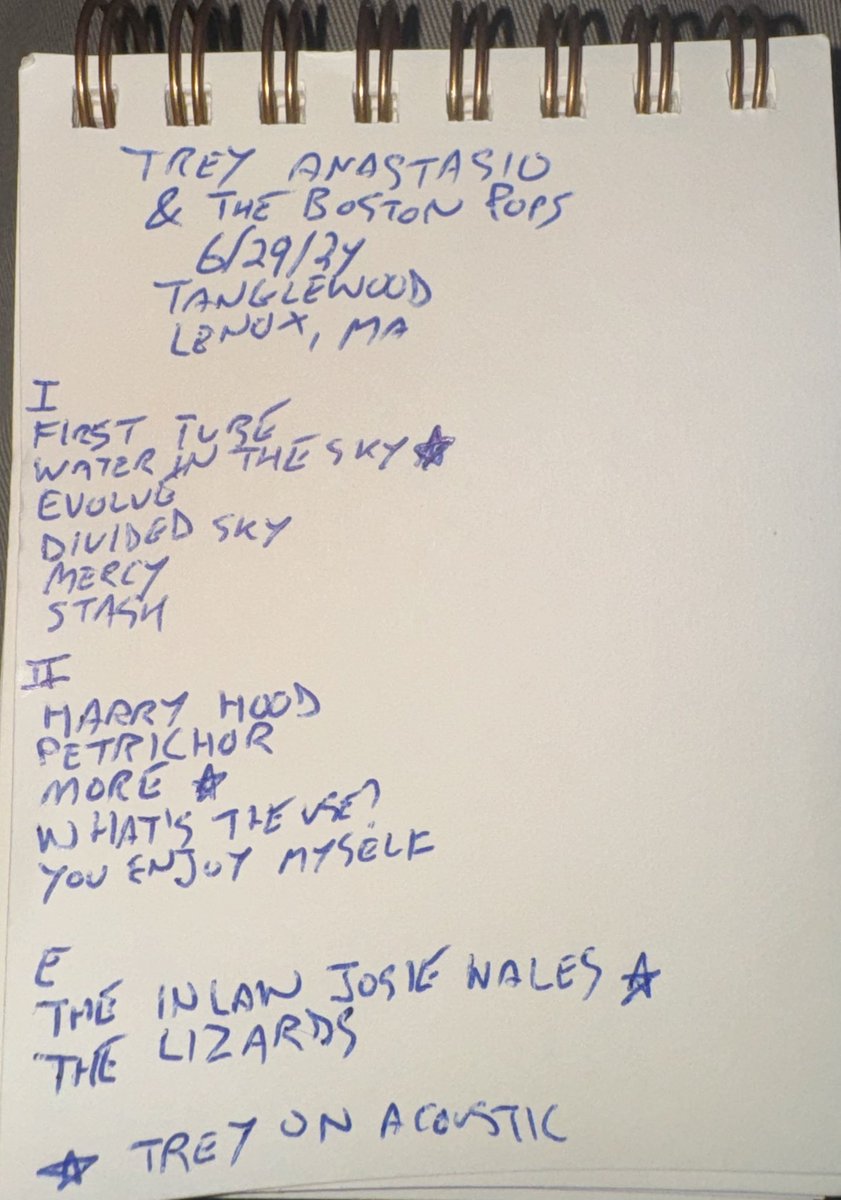 TREY ANASTASIO
& THE BOSTON POPS
6/29/24
TANGLEWOOD
LENOX, MA
I
FIRST TUBE
WATER IN THE SKY ☆
EVOLVE
DIVIDED SKY
MERCY
STASH
II
HARRY HOOD
PETRICHOR
MORE ☆
WHAT'S THE USE?
YOU ENJOY MYSELF
E
THE INLAW JOSIE WALES ☆
THE LIZARDS
☆ TREY ON ACOUSTIC